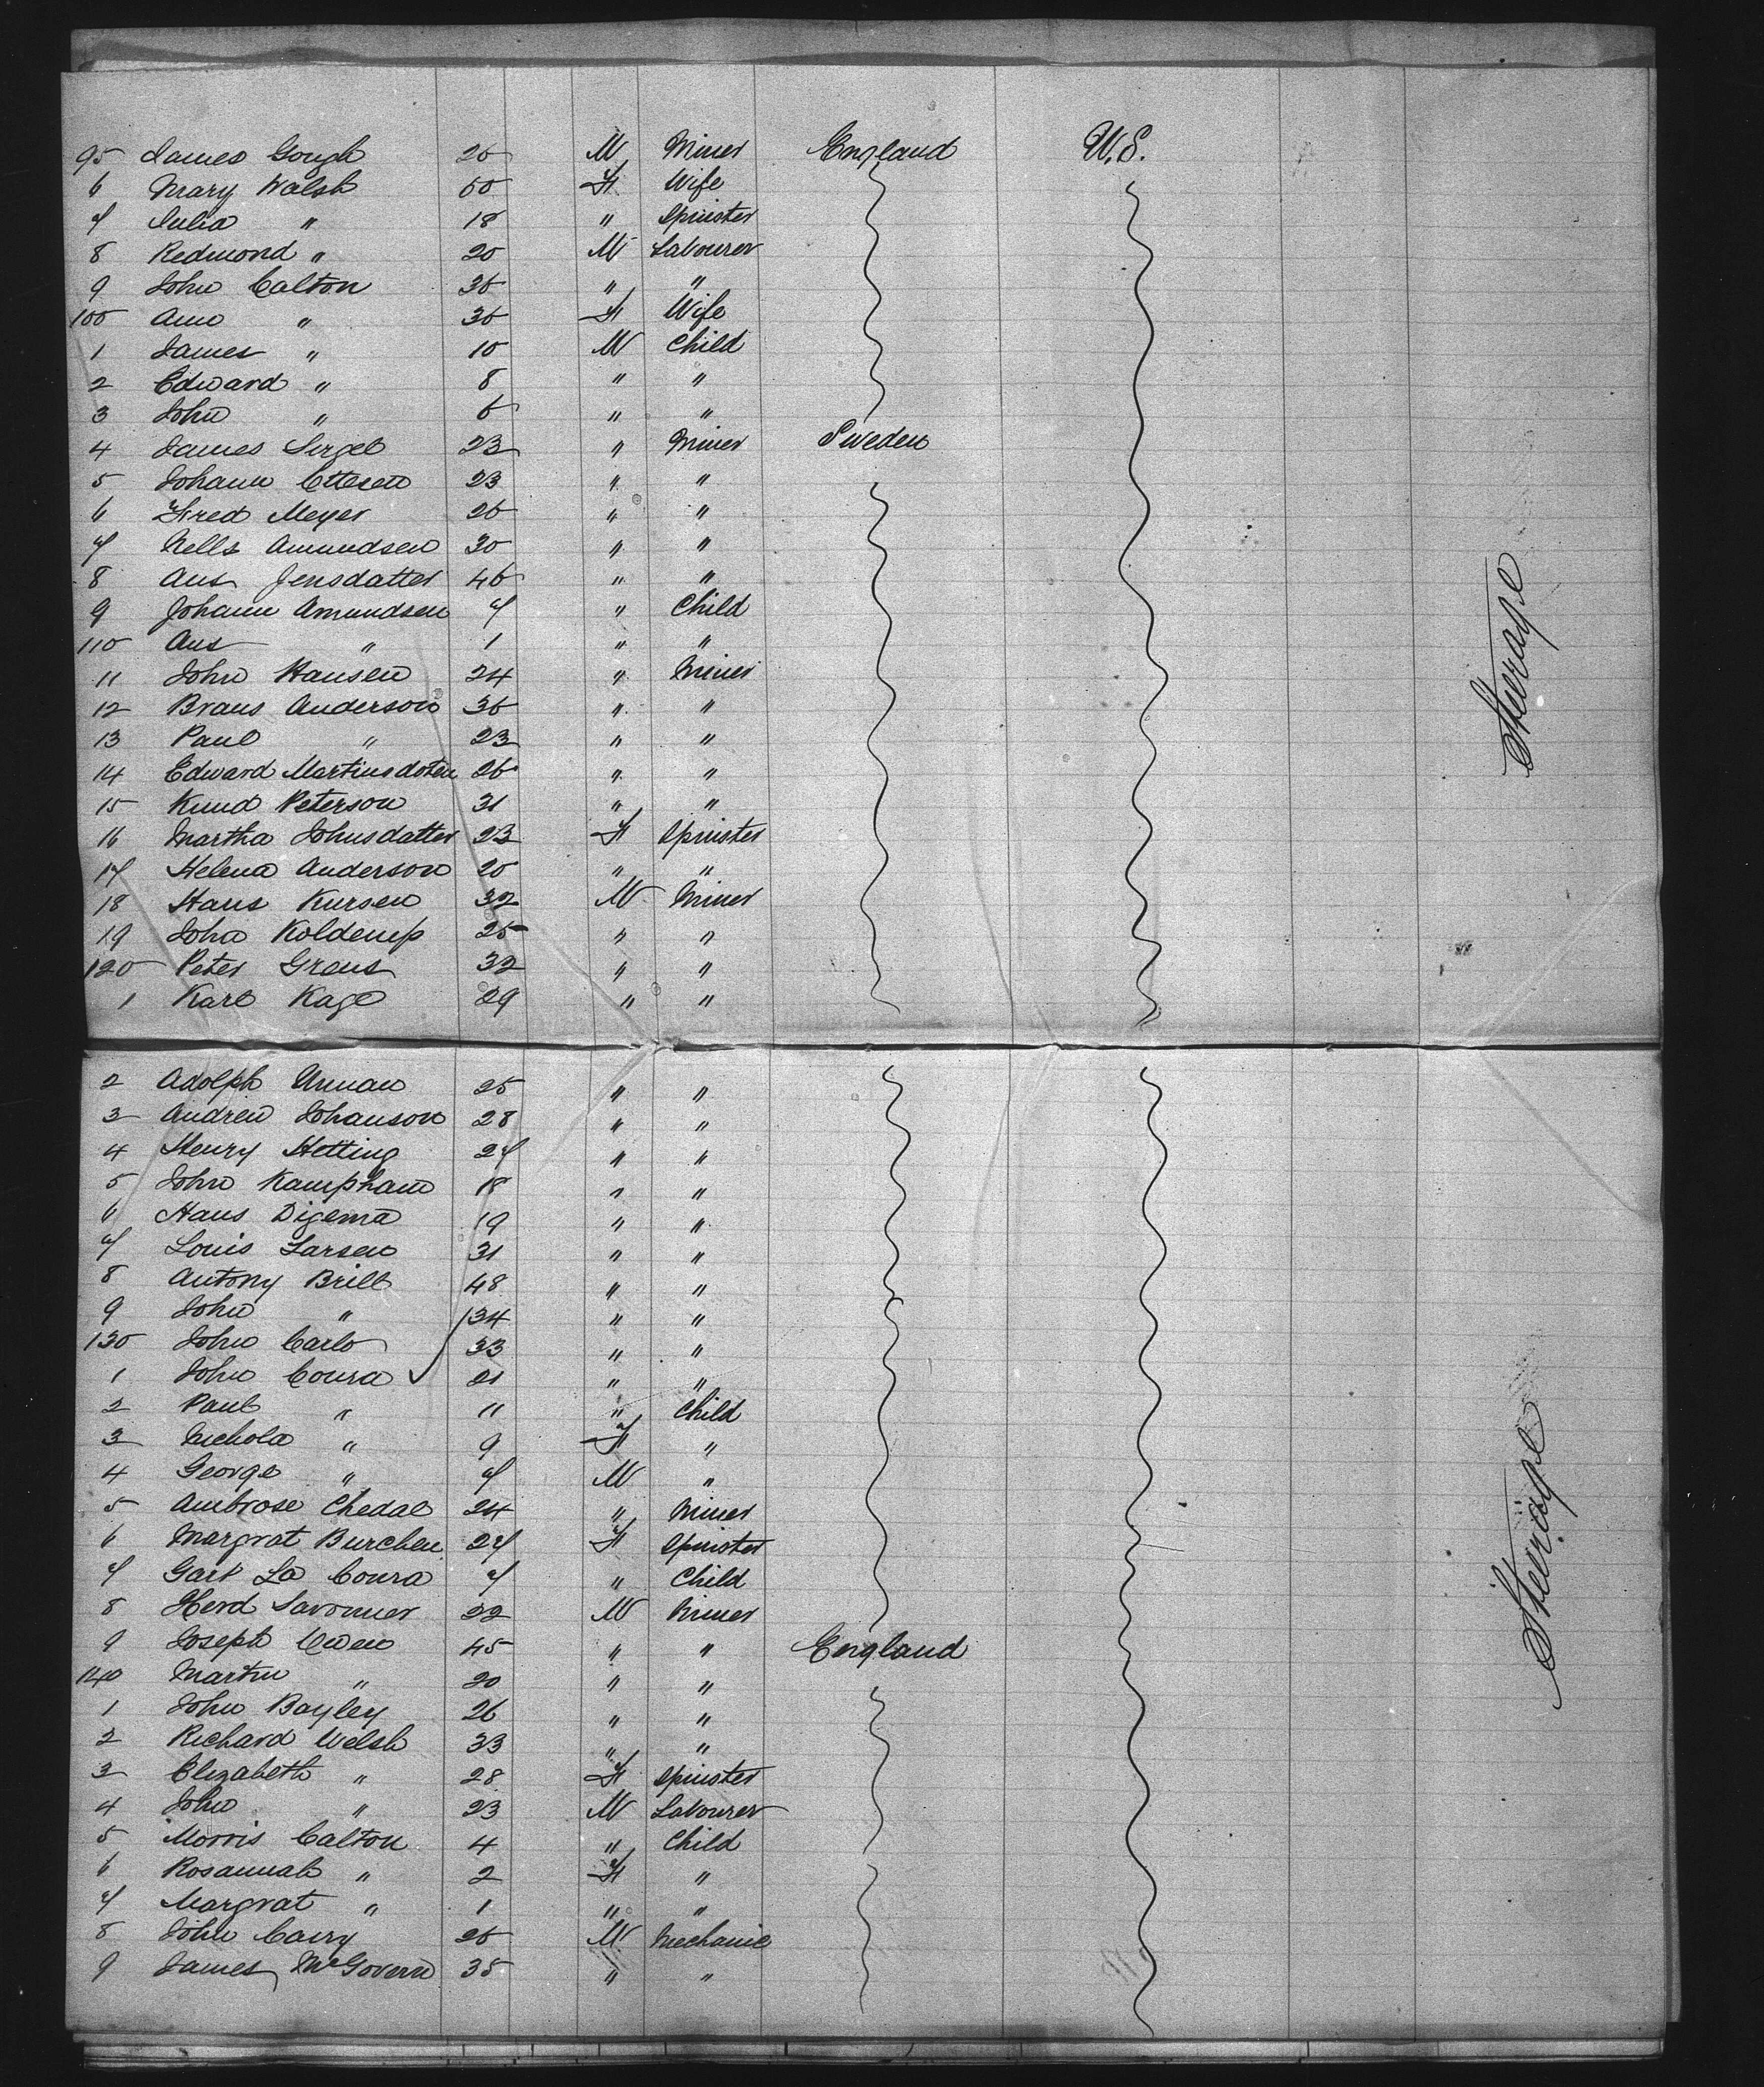 95 James Gough 26 M Miner England U.S.
6 Mary Walsh 50 F Wife
7 Julia " 18 " Spinster
8 Redmond " 20 M Labourer
9 John Calton 36 " "
100 Ann " 36 F Wife
1 James " 10 M Child
2 Edward " 8 " "
3 John " 6 " "
4 James 23 " Miner Sweden
5 Johann 23 " "
6 Fred Meyer 26 " "
7 Nells Amundsen 30 " "
8 Ans Jensdatter 46 " "
9 Johann Amundsen 7 " Child
110 Ans " 1 " "
11 John Hansen 24 " Miner
12 Braus Anderson 36 " "
13 Paul " 23 " "
14 Edward Martinsdoten 26 " "
15 Knud Peterson 31 " "
16 Martha Johnsdatter 23 F Spinster
17 Helena Anderson 20 " "
18 Hans Kursen 32 M Miner
19 Joha Koldemp 25 " "
120 Peter Grens 32 " "
1 Karl Kage 29 " "
Steerage
2 Adolph Unman 25 " "
3 Andrew Johanson 28 " "
4 Henry Hetting 27 " "
5 John Kampham 18 " "
6 Hans Digema 19 " "
7 Louis Larsen 31 " "
8 Antony Brill 48 " "
9 John " 34 " "
130 John Carlo 33 " "
1 John Coura 21 " "
2 Paul " 11 " Child
3 Nichola " 9 F "
4 George " 7 M "
5 Ambrose Chedal 24 " Miner
6 Margrat Burchen 27 F Spinster
7 La Coura 7 " Child
8 Herd Savonner 22 M Miner
9 Joseph Owen 45 " " England
140 Martin " 20 " "
1 John Bayley 26 " "
2 Richard Welsh 33 " "
3 Elizabeth " 28 F Spinster
4 John " 23 M Labourer
5 Morris Calton 4 " Child
6 Rosannah " 2 F "
7 Margrat " 1 " "
8 John Cairy 26 M Mechanic
9 James McGovern 35 " "
Steerage